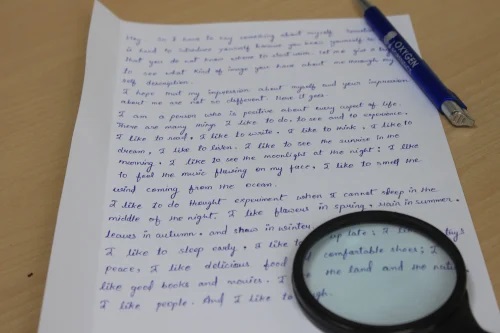 Hey. So I have to say something about myself. Sometimes
is hard to introduce yourself because you know yourself so
that you do not know where to start with. Let me give a try
to see what kind of image you have about me through my
self description.
I hope that my impression about myself and your impression
about me are not so different. Here it goes.
I am a person who is positive about every aspect of life.
There are many things I like to do, to see and to experience.
I like to read, I like to write, I like to think, I like to
dream, I like to listen. I like to see the sunrise in the
morning, I like to see the moonlight at the night; I like
to feel the music flowing on my face, I like to smell the
wind coming from the ocean.
I like to do thought experiment when I cannot sleep in the
middle of the night. I like flowers in spring, rain in summer,
leaves in autumn, and snow in winter.
I like to sleep early, I like to up late; I
peace, I like delicious food comfortable shoes; I
like good books and movies. I the land and the
I like people. And I like to
OXYGEN